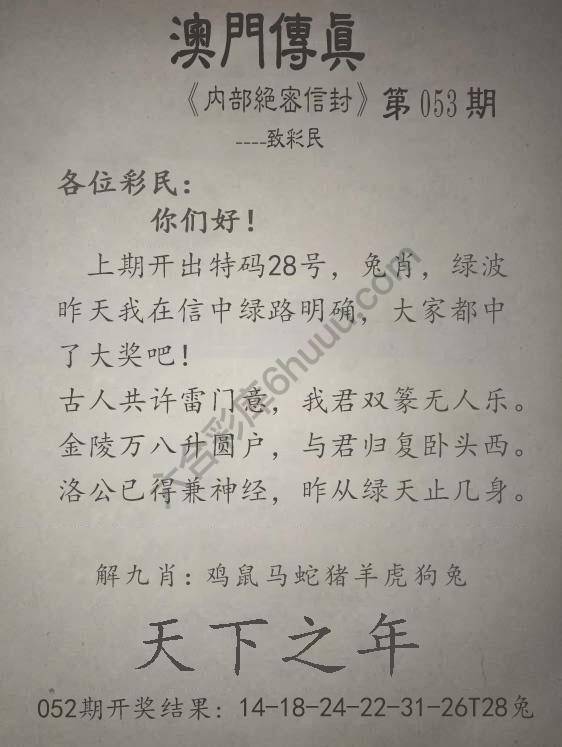 澳門傳眞
《内部絕密信封》第053期
----致彩民
各位彩民：
你们好！
上期开出特码28号，兔肖，绿波
昨天我在信中绿路明确，大家都中
了大奖吧！
古人共许雷门意，我君双篆无人乐。
金陵万八升圆户，与君归复卧头西。
洛公已得兼神经，昨从绿天止几身。
解九肖：鸡鼠马蛇猪羊虎狗兔
天下之年
052期开奖结果：14-18-24-22-31-26T28兔
六合彩库6huuu.com